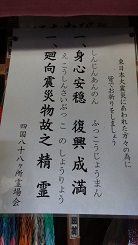 東日本大震災にあわれた方々の為に
皆でお祈りをしましょう
しんじんあんのん ふっこうじょうまん
一 身心安穏 復興成満
えこうしんさいぶっこ の しょうりょう
一 廻向震災物故之精霊
四国八十八ヶ所霊場会